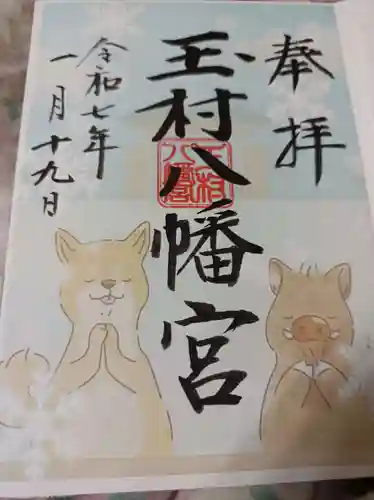 奉拝
玉村八幡宮
令和七年
一月十九日
玉村
八幡